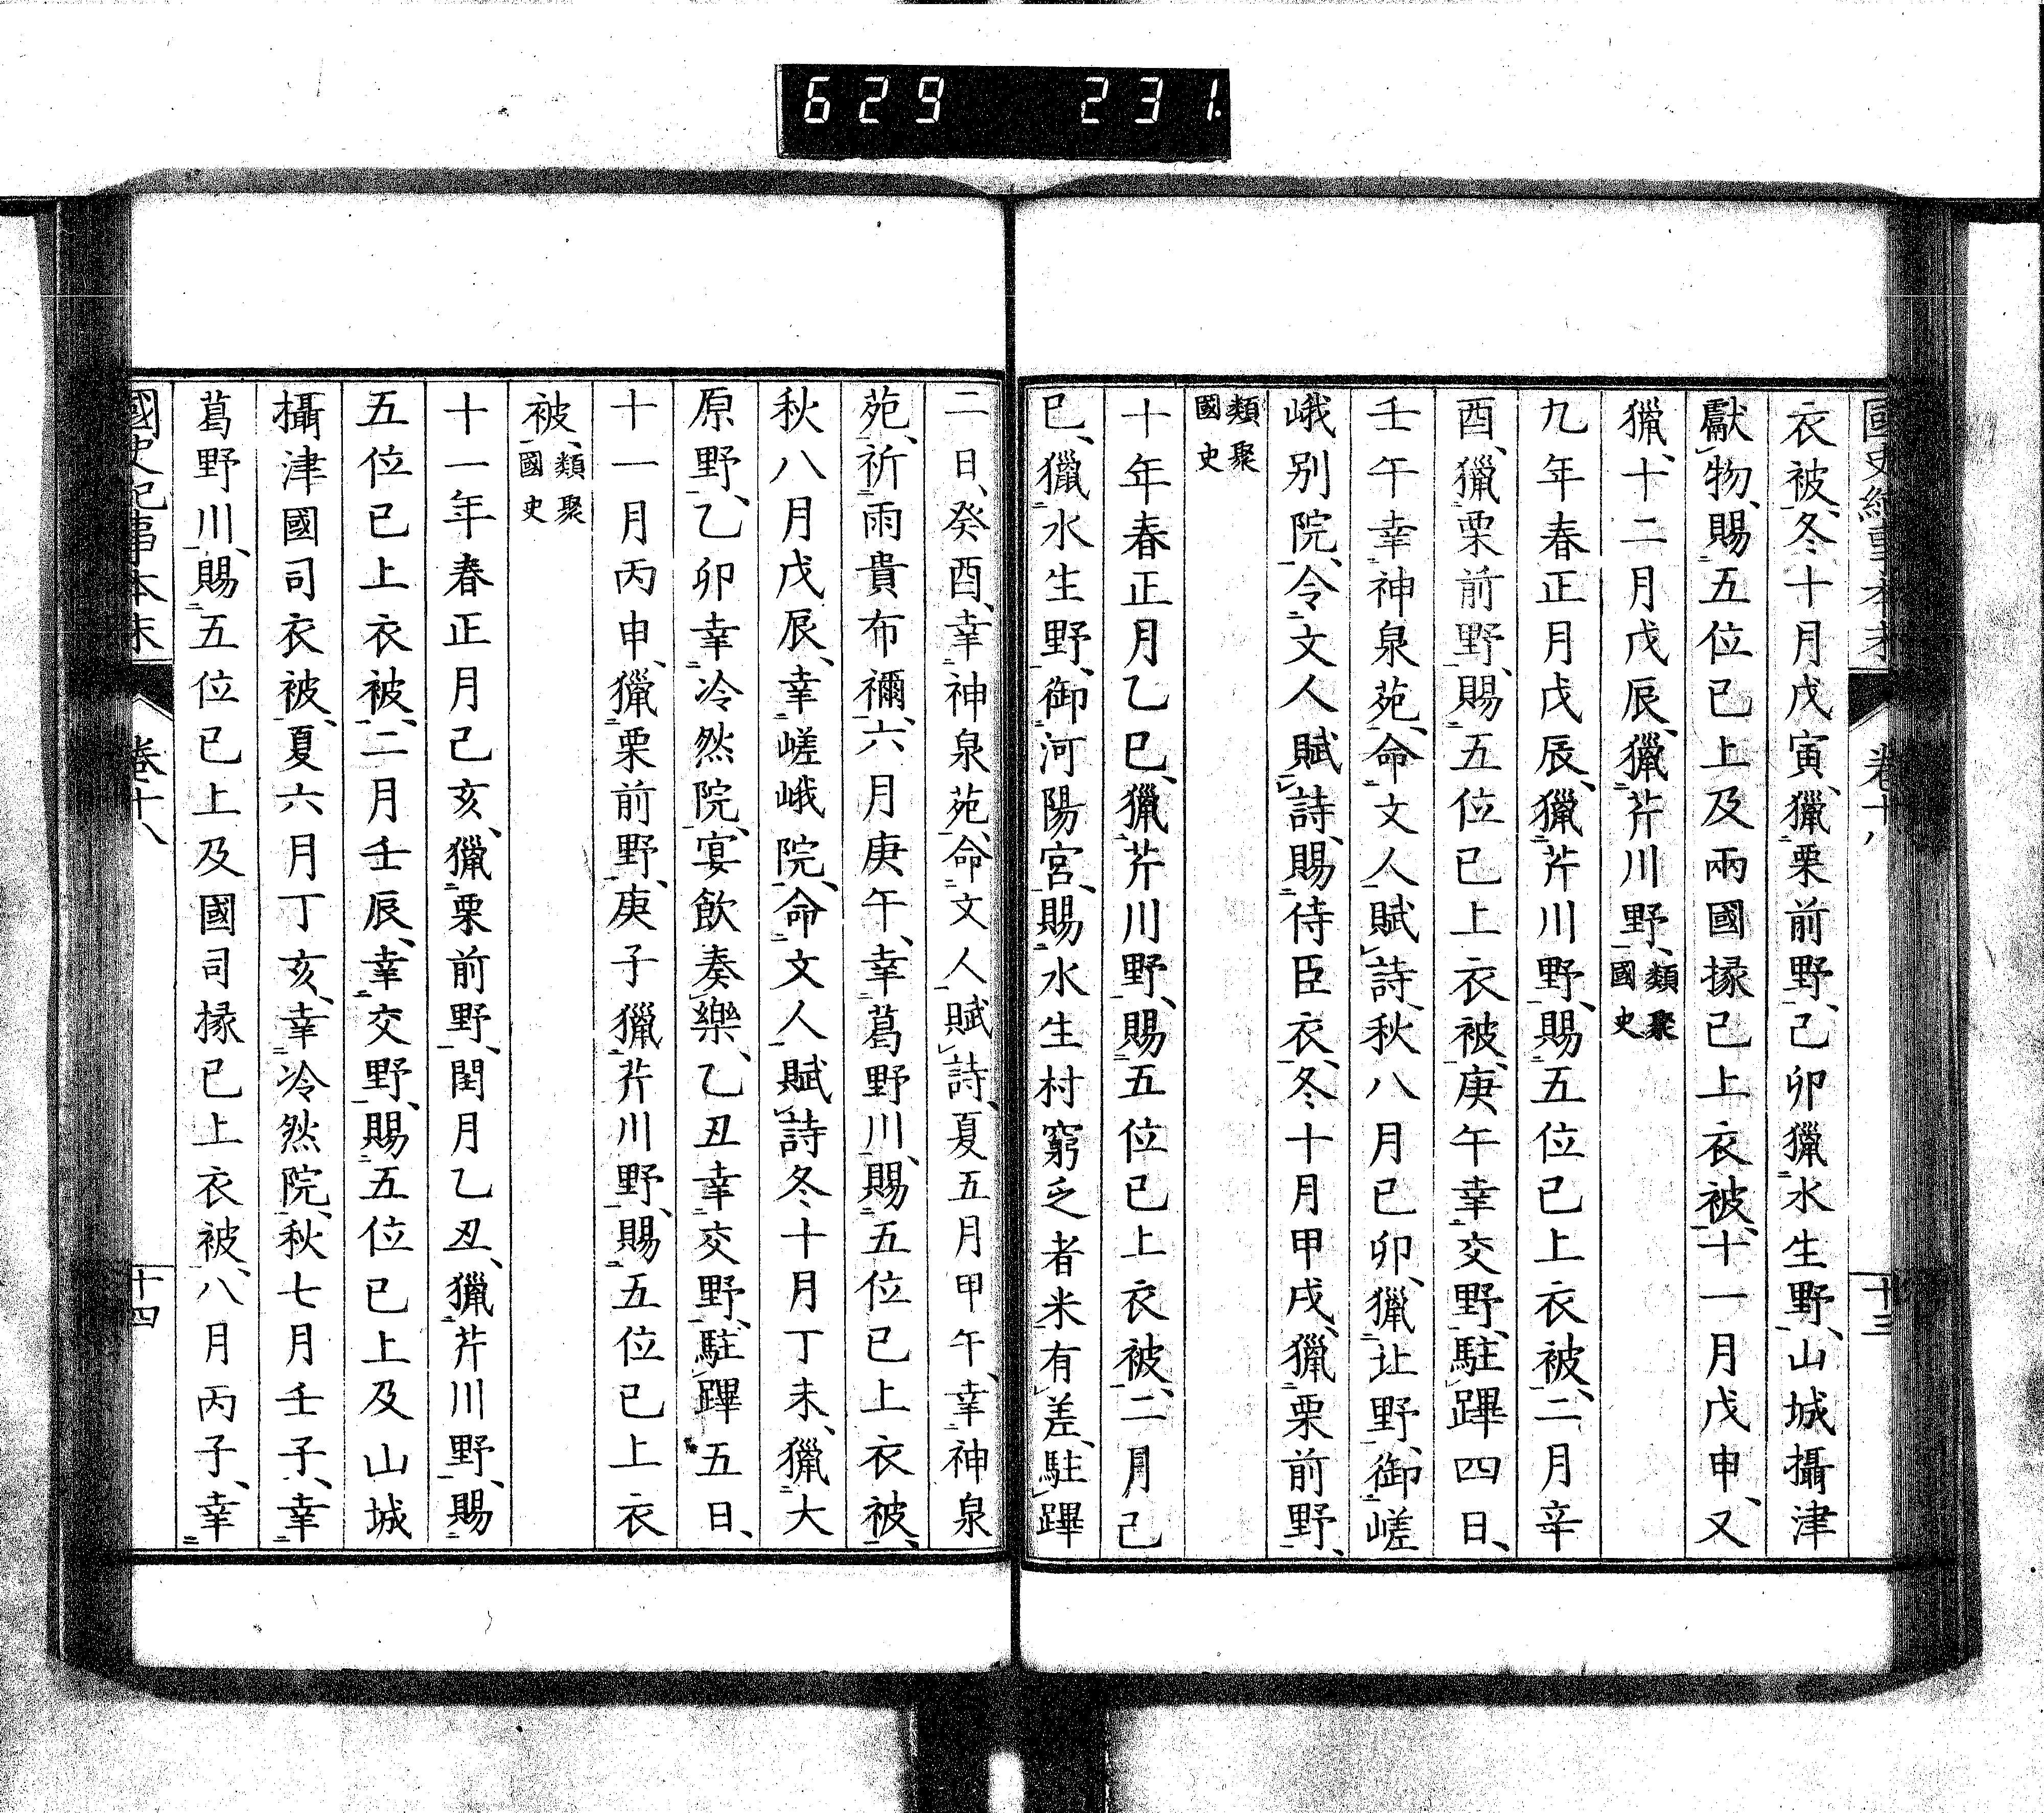 629 231.
國史紀事本末 卷十八 十三
衣被、冬十月戊寅、獵栗前野、己卯獵水生野、山城攝津
獻物、賜五位已上及兩國掾已上衣被、十一月戊申、又
獵、十二月戊辰、獵芹川野、類聚國史
九年春正月戊辰、獵芹川野、賜五位已上衣被、二月辛
酉、獵栗前野、賜五位已上衣被、庚午幸交野、駐蹕四日、
壬午幸神泉苑、命文人賦詩、秋八月己卯、獵北野、御嵯
峨别院、令文人賦詩、賜侍臣衣、冬十月甲戌、獵栗前野、
類聚國史
十年春正月乙巳、獵芹川野、賜五位已上衣被、二月己
巳、獵水生野、御河陽宮、賜水生村窮乏者米有差、駐蹕
二日、癸酉、幸神泉苑、命文人賦詩、夏五月甲午、幸神泉
苑、祈雨貴布禰、六月庚午、幸葛野川、賜五位已上衣被、
秋八月戊辰、幸嵯峨院、命文人賦詩冬十月丁未、獵大
原野、乙卯幸冷然院、宴飲奏樂、乙丑幸交野、駐蹕五日、
十一月丙申、獵栗前野、庚子獵芹川野、賜五位已上衣
被、類聚國史
十一年春正月己亥、獵栗前野、閏月乙丑、獵芹川野、賜
五位已上衣被、二月壬辰、幸交野、賜五位已上及山城
攝津國司衣被、夏六月丁亥、幸冷然院、秋七月壬子、幸
葛野川、賜五位已上及國司掾已上衣被、八月丙子、幸
國史紀事本末 卷十八 十四